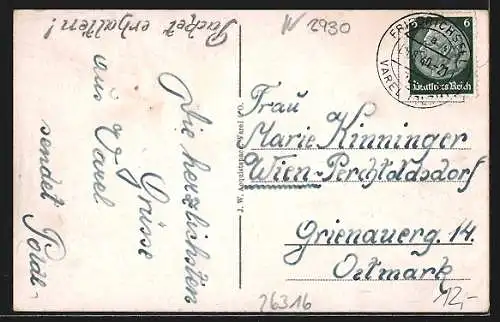 Packet erhalten!
W 2930
Die herzlichsten
Grüsse
aus Varel
sendet Poldl
J. W. Acquistapace, Varel i/O.
FRIEDRICHS
VAREL
6
Deutsches Reich
Frau
Marie Kinninger
Wien-Perchtoldsdorf
Grienauerg. 14.
Ostmark
26316
12,-